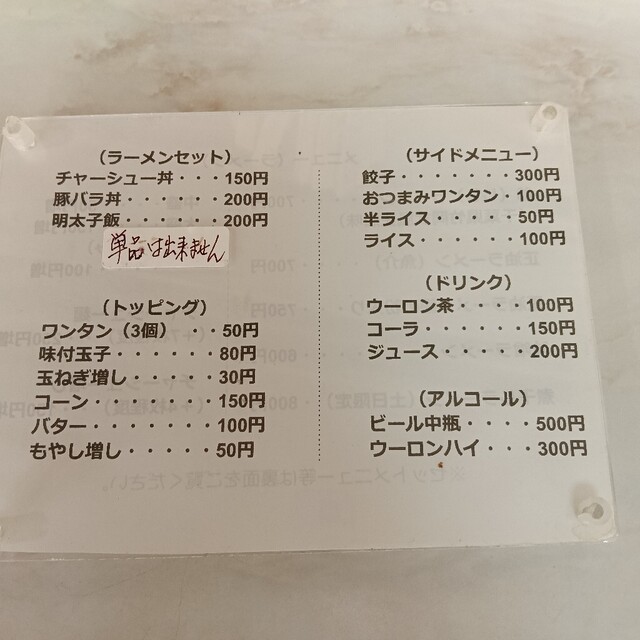 （ラーメンセット）
チャーシュー丼・・・150円
豚バラ丼・・・・・・200円
明太子飯・・・・・・200円
単品は出来ません
（トッピング）
ワンタン（3個）・・50円
味付玉子・・・・・・80円
玉ねぎ増し・・・・・30円
コーン・・・・・・・150円
バター・・・・・・・100円
もやし増し・・・・・50円
（サイドメニュー）
餃子・・・・・・・300円
おつまみワンタン・100円
半ライス・・・・・50円
ライス・・・・・・100円
（ドリンク）
ウーロン茶・・・・100円
コーラ・・・・・・150円
ジュース・・・・・200円
（アルコール）
ビール中瓶・・・・500円
ウーロンハイ・・・300円